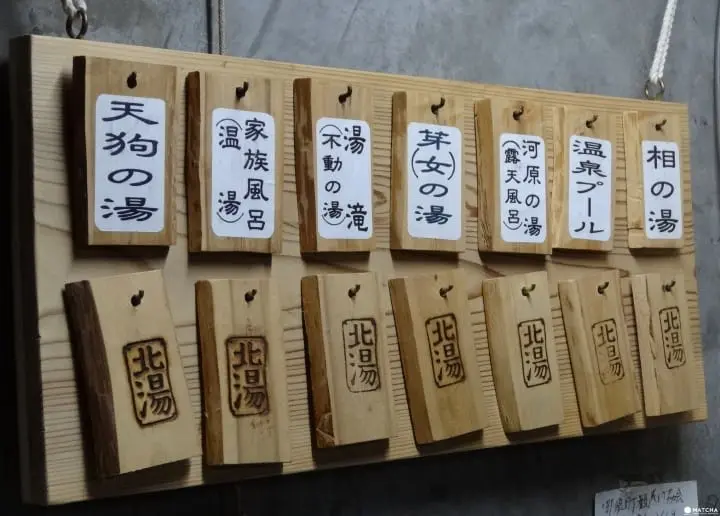 天狗の湯
家族風呂
(温湯)
湯滝
(不動の湯)
芽(女)の湯
河原の湯
(露天風呂)
温泉プール
相の湯
北湯
北湯
北湯
北湯
北湯
北湯
北湯
MATCHA